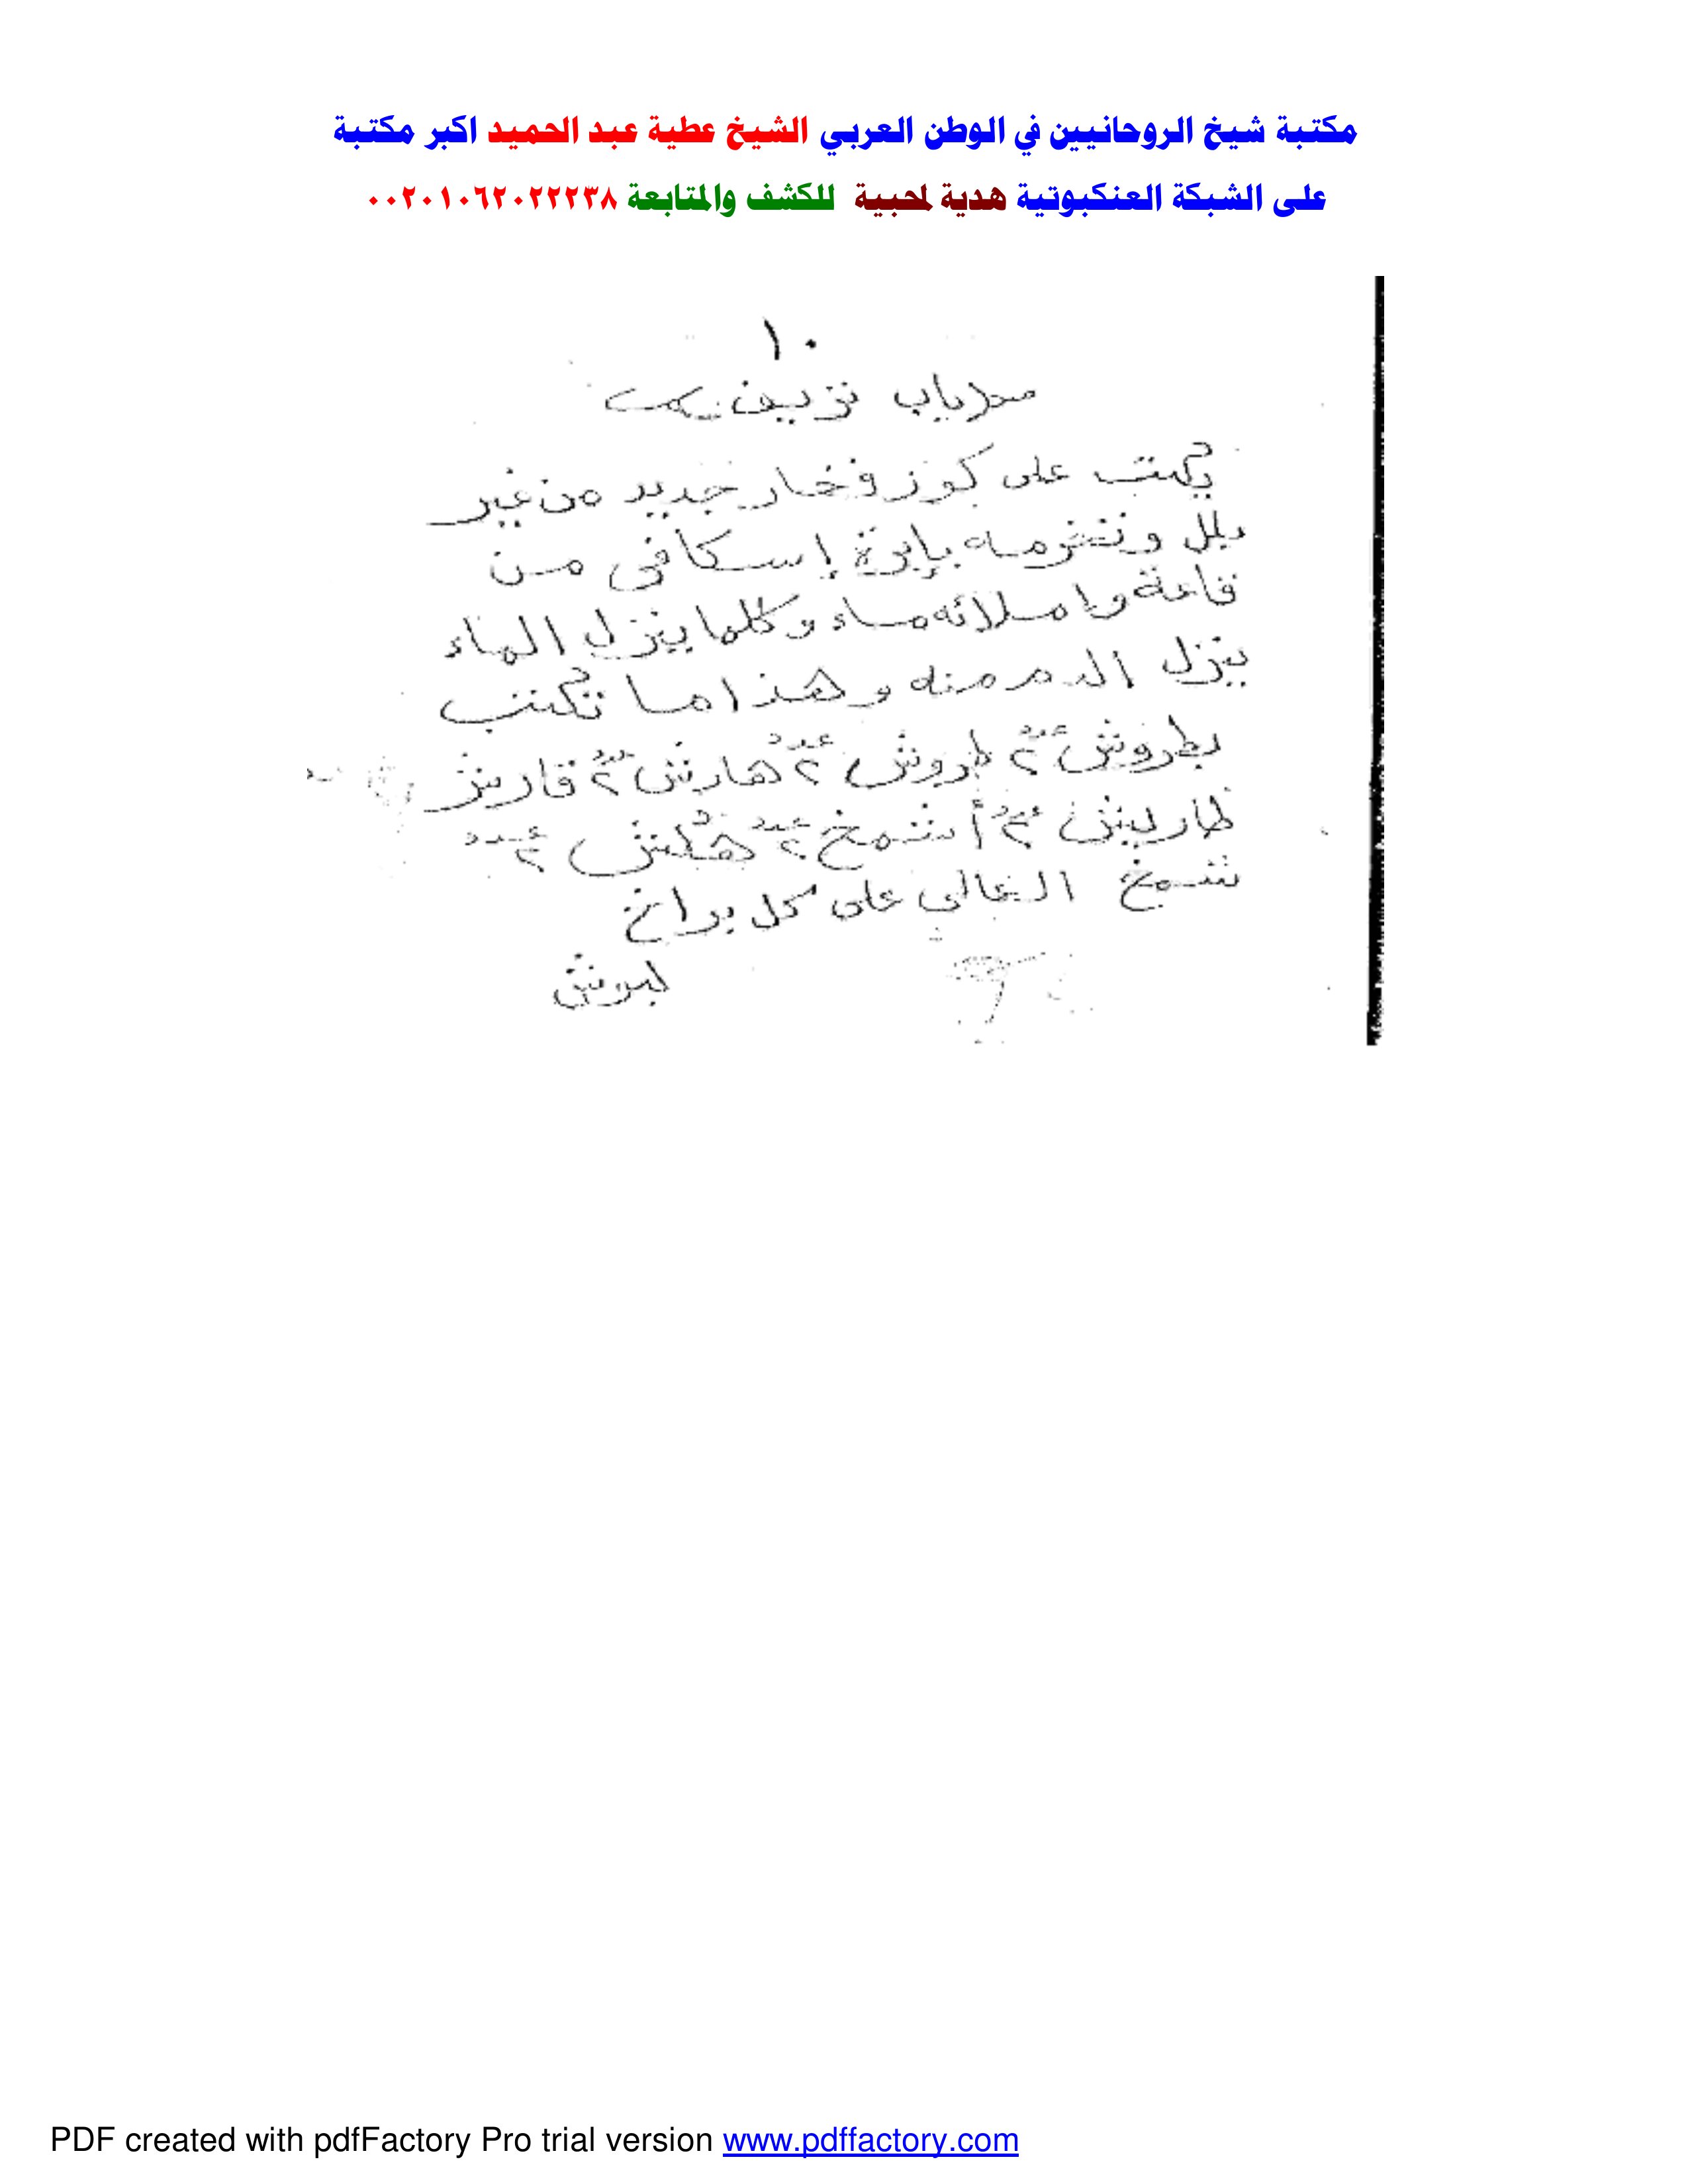 مكتبة شيخ الروحانيين في الوطن العربي الشيخ عطية عبد الحميد اكبر مكتبة
على الشبكة العنكبوتية هدية لمحبية للكشف والمتابعة ٠٠٢٠١٠٦٢٠٢٢٢٣٨
١٠
باب نزيف
يكتب على كوز فخار جديد من غير
بلل وتخرمه بإبرة إسكافى من
قاعة واملائه ماء وكلما ينزل الماء
ينزل الدم منه وهذا ما تكتب
بطروش عدد ٢ طروش عدد ٢ هارش عدد ٢ قارش
طاريش عدد ٢ أشمخ عدد ٢ هلش عدد ٢
شمخ العالى على كل براخ
PDF created with pdfFactory Pro trial version www.pdffactory.com